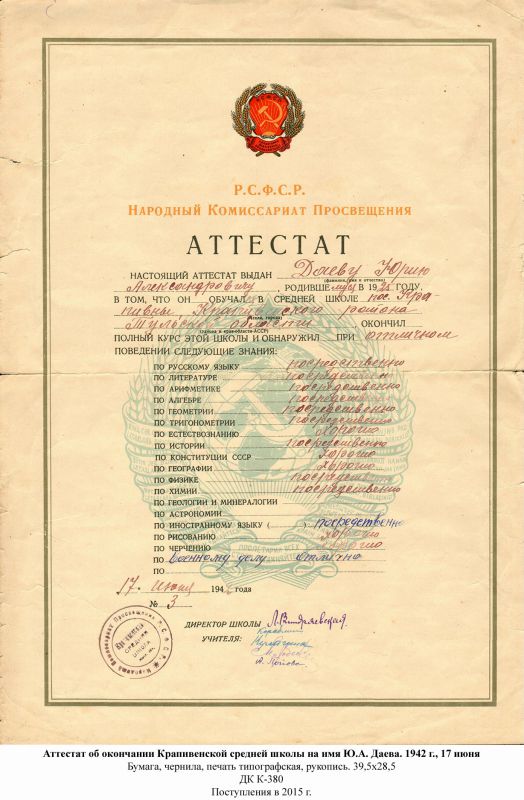 Р.С.Ф.С.Р.
Народный Комиссариат Просвещения
АТТЕСТАТ
НАСТОЯЩИЙ АТТЕСТАТ ВЫДАН Даеву Юрию
(фамилия, имя и отчество)
Александровичу, РОДИВШЕМУСЯ В 1925 ГОДУ,
В ТОМ, ЧТО ОН ОБУЧАЛСЯ В СРЕДНЕЙ ШКОЛЕ пос. Кра-
пивны, Крапивенского района
Тульской области ОКОНЧИЛ
ПОЛНЫЙ КУРС ЭТОЙ ШКОЛЫ И ОБНАРУЖИЛ ПРИ отличном
ПОВЕДЕНИИ СЛЕДУЮЩИЕ ЗНАНИЯ:
ПО РУССКОМУ ЯЗЫКУ посредственно
ПО ЛИТЕРАТУРЕ посредственно
ПО АРИФМЕТИКЕ посредственно
ПО АЛГЕБРЕ посредственно
ПО ГЕОМЕТРИИ посредственно
ПО ТРИГОНОМЕТРИИ посредственно
ПО ЕСТЕСТВОЗНАНИЮ хорошо
ПО ИСТОРИИ посредственно
ПО КОНСТИТУЦИИ СССР хорошо
ПО ГЕОГРАФИИ хорошо
ПО ФИЗИКЕ посредственно
ПО ХИМИИ посредственно
ПО ГЕОЛОГИИ И МИНЕРАЛОГИИ
ПО АСТРОНОМИИ
ПО ИНОСТРАННОМУ ЯЗЫКУ ( ) посредственно
ПО РИСОВАНИЮ хорошо
ПО ЧЕРЧЕНИЮ хорошо
ПО военному делу отлично
ПО
17 июня 1942 года
№ 3
ДИРЕКТОР ШКОЛЫ
УЧИТЕЛЯ:
А. Попова
СРЕДНЯЯ
ШКОЛА
Аттестат об окончании Крапивенской средней школы на имя Ю.А. Даева. 1942 г., 17 июня
Бумага, чернила, печать типографская, рукопись. 39,5х28,5
ДК К-380
Поступления в 2015 г.